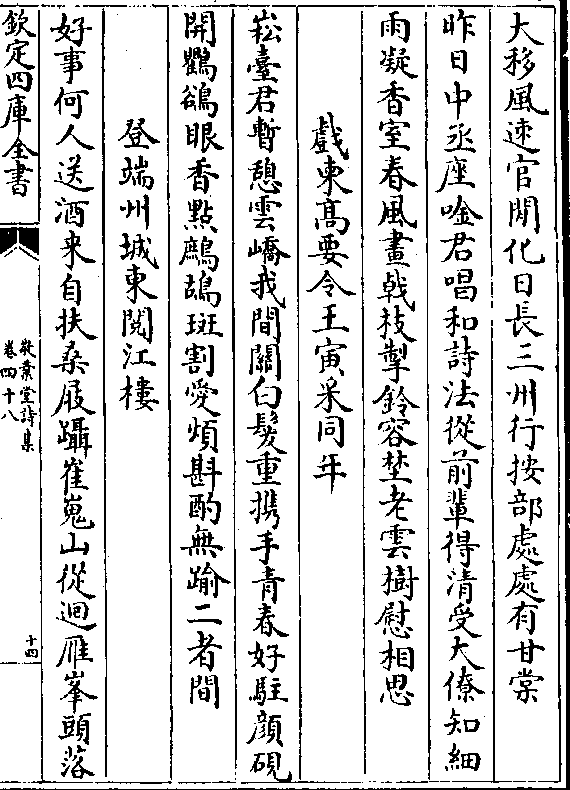 大移風速官閒化日長三州行按部處處有甘棠
昨日中丞座唫君唱和詩法從前輩得清受大僚知細
雨凝香室春風畫㦸枝掣鈴容埜老雲樹慰相思
戲柬髙要令王寅采同年
崧臺君暫憩雲嶠我間關白髮重携手青春好駐顔硯
開鸜鵒眼香點鷓鴣斑割愛煩斟酌無踰二者間
登端州城東閲江樓
好事何人送酒来自扶桑屐躡崔嵬山從迴雁峯頭落
欽定四庫全書
敬業堂詩集
卷四十八
十四